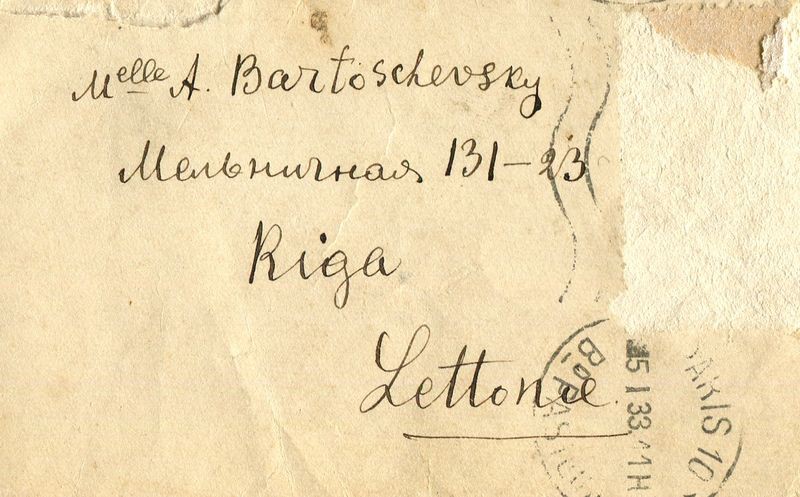 Melle A. Bartoschevsky
Мельничная 131-23
Riga
Lettonie
PARIS 10
15 I 33 11H